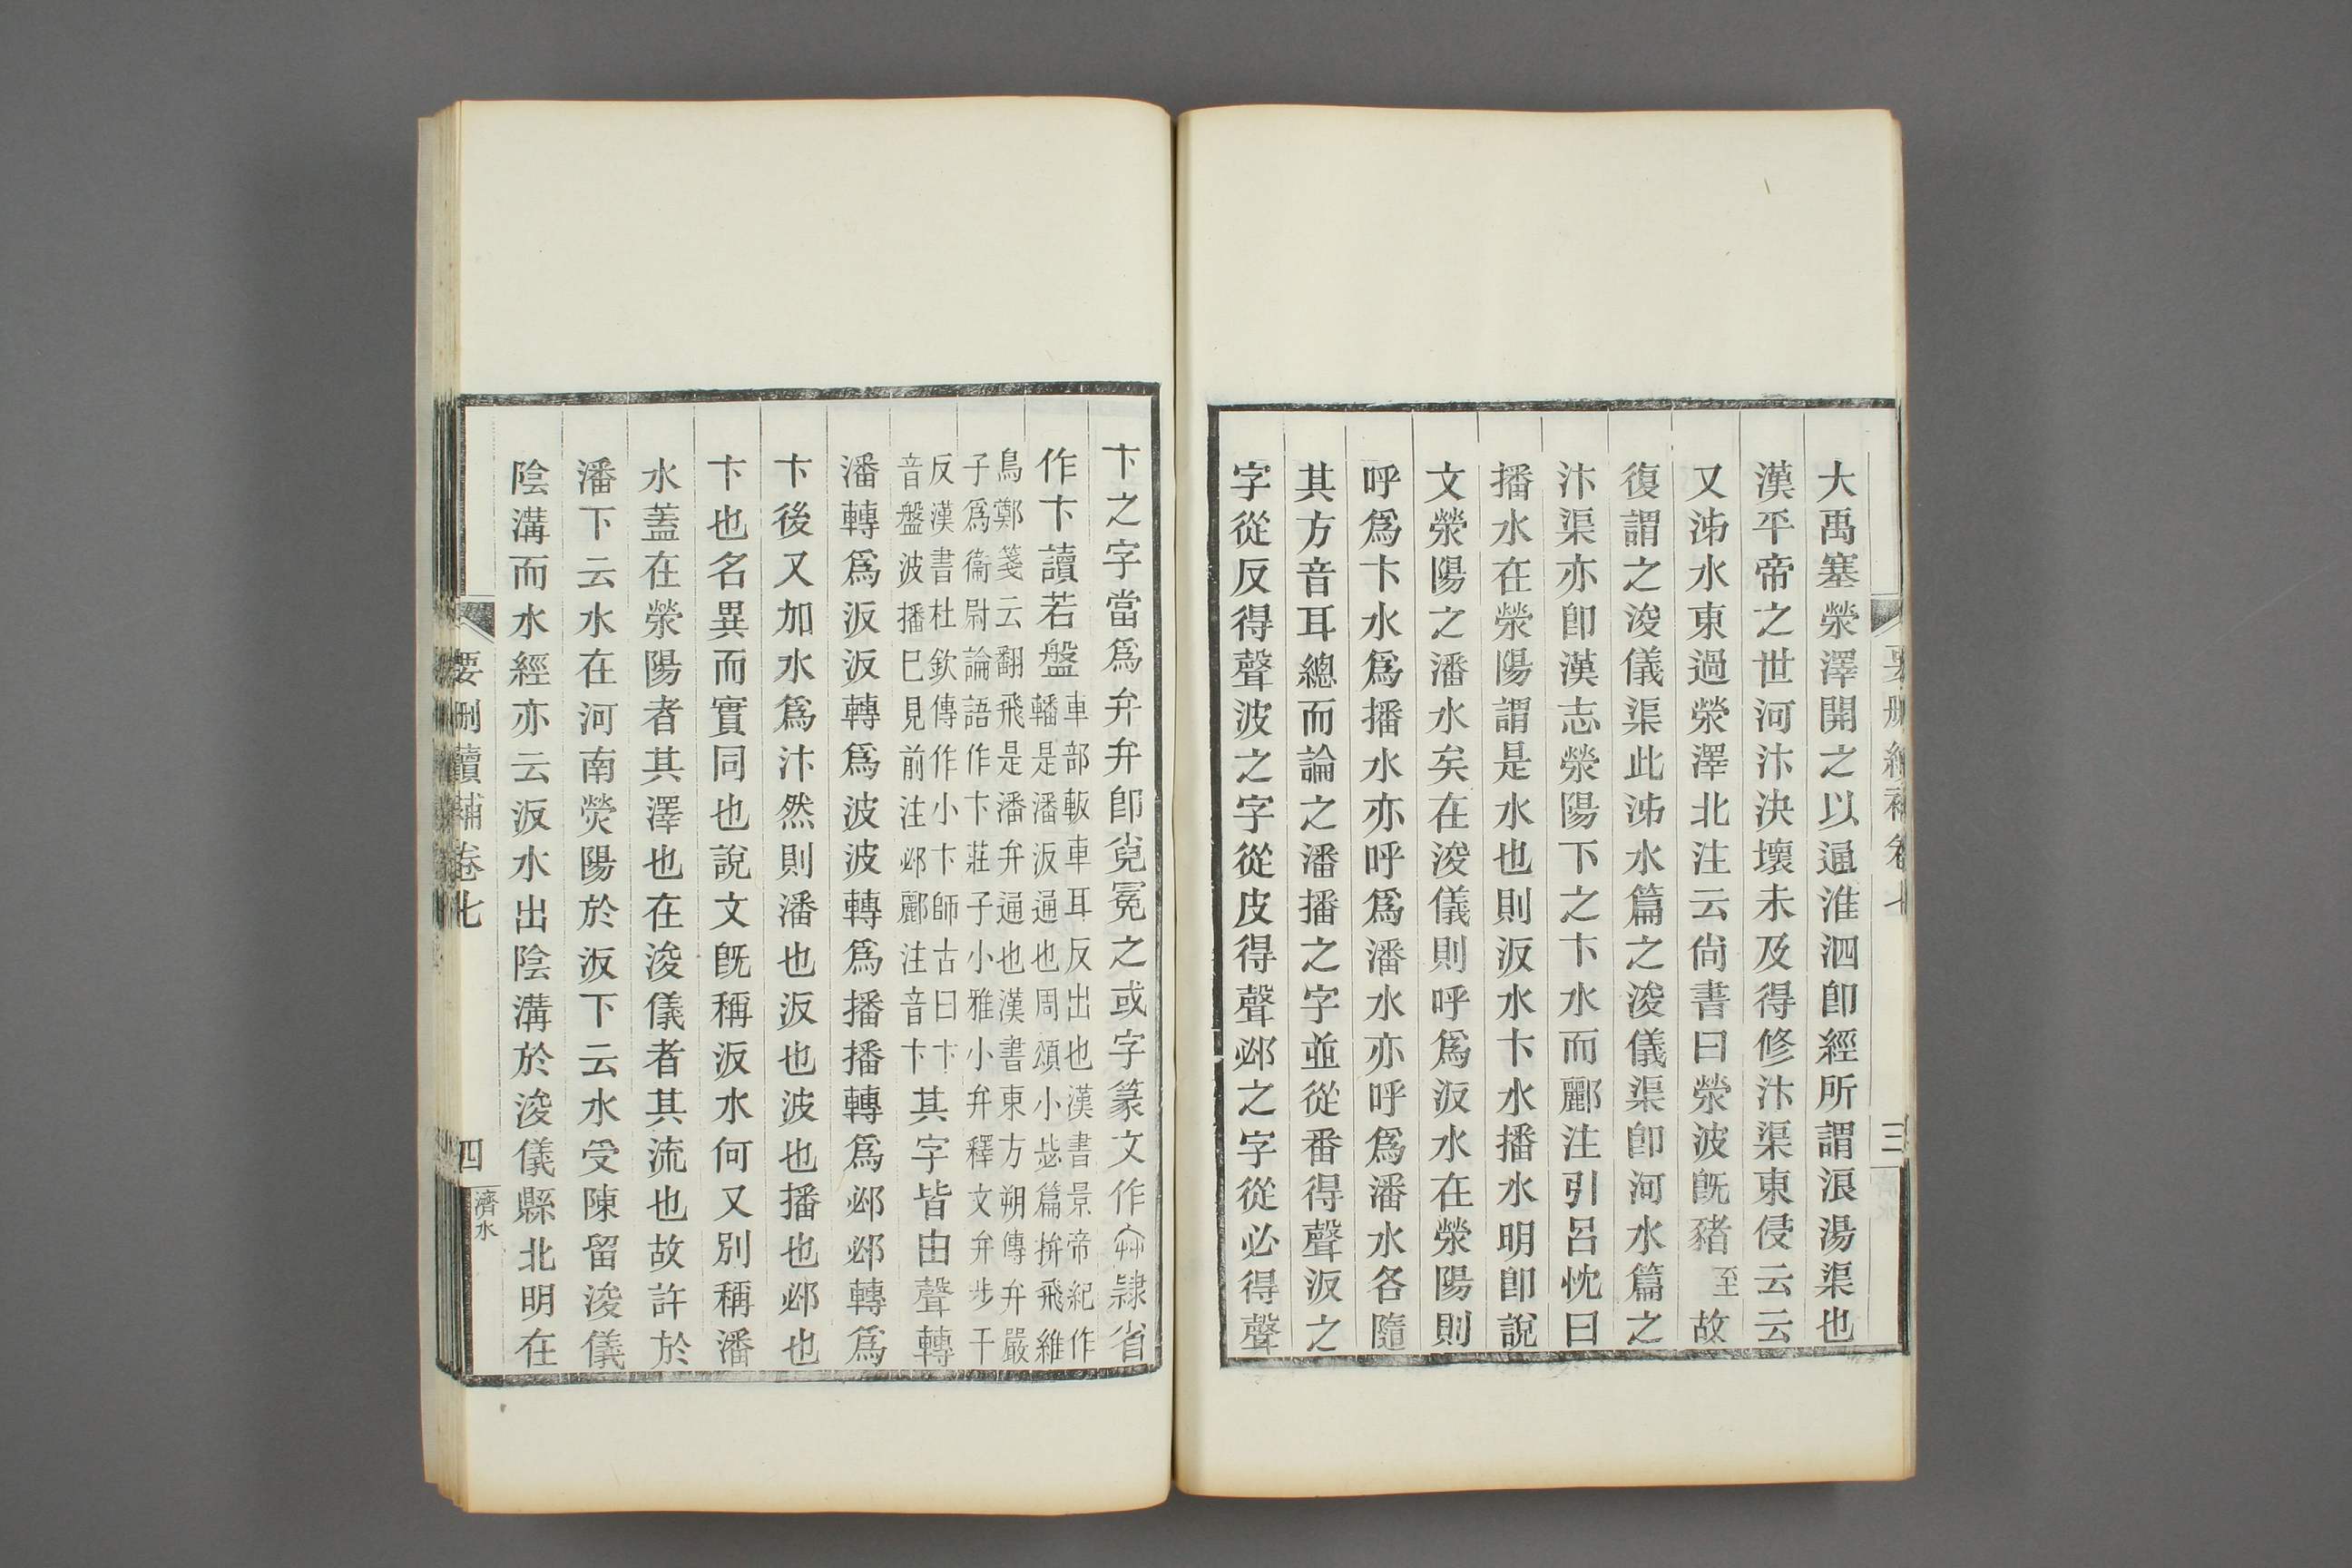 大禹塞滎澤開之以通淮泗卽經所謂浪湯渠也
漢平帝之世河汴決壞未及得修汴渠東侵云云
又泲水東過滎澤北注云尙書曰滎波旣豬至故
復謂之浚儀渠此泲水篇之浚儀渠卽河水篇之
汴渠亦卽漢志滎陽下之卞水而酈注引呂忱曰
播水在滎陽謂是水也則汳水卞水播水明卽說
文滎陽之潘水矣在浚儀則呼爲汳水在滎陽則
呼爲卞水爲播水亦呼爲潘水亦呼爲潘水各隨
其方音耳總而論之潘播之字並從番得聲汳之
字從反得聲波之字從皮得聲邲之字從必得聲
卞之字當爲弁弁卽覍冕之或字篆文作隷省
作卞讀若盤車部軬車耳反出也漢書景帝紀作
轓是潘汳通也周頌小毖篇拚飛維
鳥鄭箋云翻飛是潘弁通也漢書東方朔傳弁嚴
子爲衞尉論語作卞莊子小雅小弁釋文弁步干
反漢書杜欽傳作小卞師古曰卞
音盤波播巳見前注邲酈注音卞其字皆由聲轉
潘轉爲汳汳轉爲波波轉爲播播轉爲邲邲轉爲
卞後又加水爲汴然則潘也汳也波也播也邲也
卞也名異而實同也說文旣稱汳水何又別稱潘
水蓋在滎陽者其澤也在浚儀者其流也故許於
潘下云水在河南熒陽於汳下云水受陳留浚儀
陰溝而水經亦云汳水出陰溝於浚儀縣北明在
要刪續補卷七
四
濟水
三